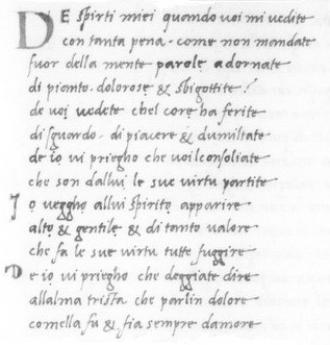 DE spirti miei quando voi mi vedite
con tanta pena · come non mandate
fuor della mente parole adornate
di pianto · dolorose & sbigottite ·
de voi vedete chel core ha ferite
di sguardo · di piacere & dumiltate
de io vi priegho che voil consoliate
che son dallui le sue virtu partite
Io veggho allui spirito apparire
alto & gentile & di tanto valore
che fa le sue virtu tutte fuggire
De io vi priegho che deggiate dire
allalma trista che parlin dolore
comella fu & fia sempre damore